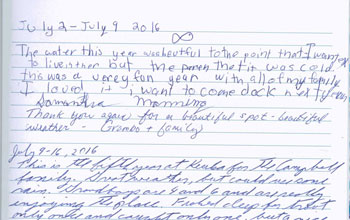 July 2 – July 9 2016
The water this year was beutful to the point that I want
to live in ther but the pereen that it was cold.
this was a verey fun year with all of my family
I loved it i want to come back n
Samantha Manning
Thank you again for a beautiful spot - beautiful
weather - (Grampo + family)
July 9-16, 2016
This is the fifth year at for the Campbell
family. Great weather, but could use some
rain. Grandboys are 9 and 6 and are really
enjoying the place. Fished deep for trout
only once and caught only one, but